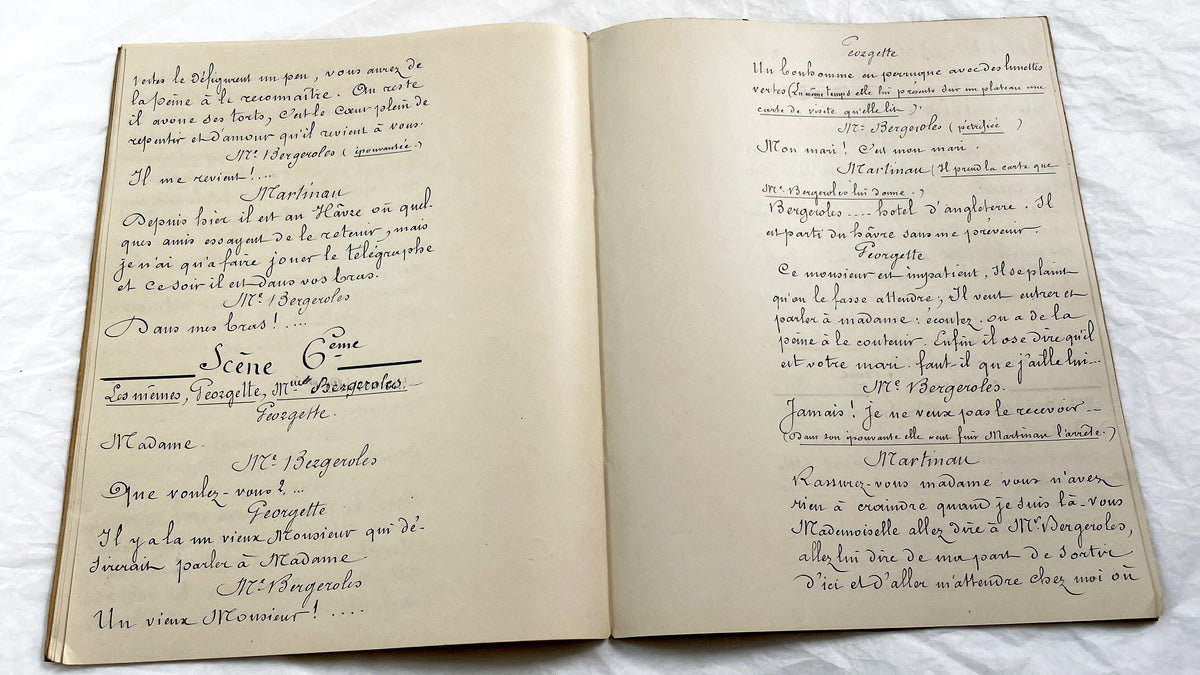 vertes le défigurent un peu, vous aurez de
la peine à le reconnaître. Au reste
il avoue ses torts, c'est le cœur plein de
repentir et d'amour qu'il revient à vous.
Me Bergeroles (épouvantée.)
Il me revient!...
Martinau
Depuis hier il est au Hâvre où quel-
ques amis essayent de le retenir, mais
je n'ai qu'a faire jouer le télégraphe
et ce soir il est dans vos bras.
Me Bergeroles
Dans mes bras!....
Scène 6ème
Les mêmes, Georgette, Bergeroles.
Georgette.
Madame.
Me Bergeroles
Que voulez-vous?...
Georgette
Il y a la un vieux Monsieur qui dé-
sirerait parler à Madame
Me Bergeroles
Un vieux Monsieur!....
Georgette
Un bonhomme en perruque avec des lunettes
vertes (En même temps elle lui présente sur un plateau une
carte de visite qu'elle lit)
Me Bergeroles (pétrifiée)
Mon mari! C'est mon mari.
Martinau (Il prend la carte que
Me Bergeroles lui donne.)
Bergeroles .... hotel d'angleterre. Il
est parti du hâvre sans me prévenir.
Georgette
Ce monsieur est impatient, il se plaint
qu'on le fasse attendre, Il veut entrer et
parler à madame: écoutez. on a de la
peine à le contenir. Enfin il ose dire qu'il
est votre mari. faut-il que j'aille lui...
Me Bergeroles.
Jamais! je ne veux pas le recevoir--
(Dans son épouvante elle veut fuir Martinau l'arrête.)
Martinau
Rassurez-vous madame vous n'avez
rien à craindre quand je suis là-vous
Mademoiselle allez dire à Mr Bergeroles,
allez lui dire de ma part de sortir
d'ici et d'aller m'attendre chez moi où